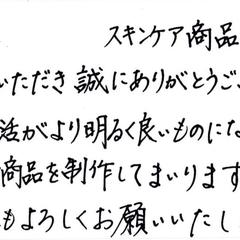 スキンケア商品
いただき 誠にありがとうござ
活がより明るく良いものにな
商品を制作してまいります
もよろしくお願いいたし